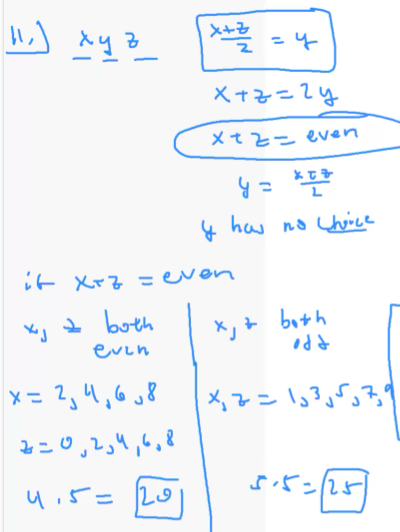 11.) x y z
x+z/2 = y
x+z = 2y
x+z = even
y = x+z/2
y has no choice
if x+z = even
x, z both even
x = 2,4,6,8
z = 0,2,4,6,8
4.5 = 20
x, z both odd
x, z = 1,3,5,7,9
5.5 = 25